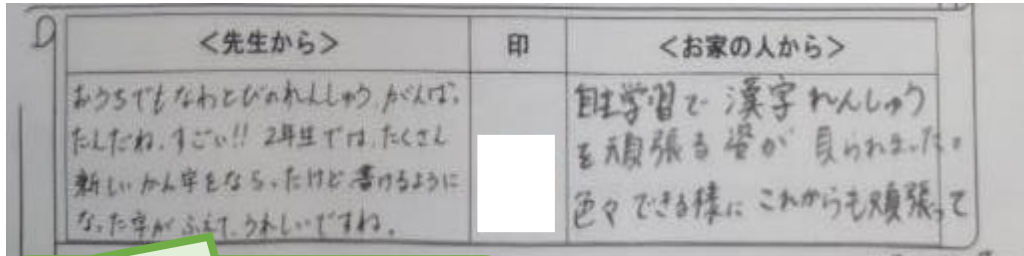 <先生から>
印
<お家の人から>
おうちでもなわとびのれんしゅう、がんばっ
たんだね。すごい!! 2年生では、たくさん
新しいかん字をならったけど書けるように
なった字がふえて、うれしいですね。
自主学習で漢字れんしゅう
を頑張る姿が見られました。
色々できる様にこれからも頑張って